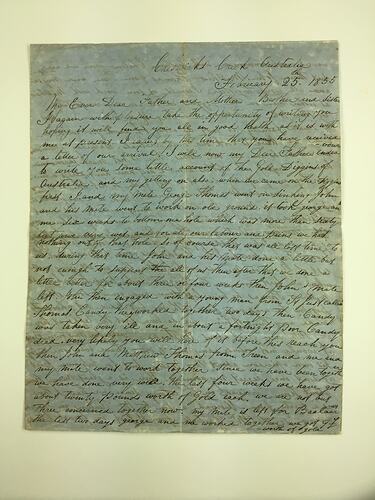 Creswicks Creek Australia
February 25th 1855
My Ever Dear Father and Mother Brother and Sister
I again with pleasure take the opportunity of writing you
hoping it will find you all in good health as it is with
me at present I think by this time that you have received
a letter of our arrival I will now my Dear Father
to write you some little account of the Gold Diggins of
Australia and my getting on also when we came on the Diggins
first I and my mate George Thomas went on
and his mate went to work on old ground it took George and
me six weeks to bottom one hole which was more than
feet and for all our labour and pains we had
nothing out of that hole so of course this was all lost time to
us during this time John and his mate done a little but
not enough to support the all of us then after this we don a
little better for about three or four weeks then John s Mate
left John then engaged with a young man from St Just called
Thomas Candy they worked together two days then Candy
was taken very ill and in about a fortnight poor Candy
died very likely you will hear of it before this reach you
then John and Matthew Thomas from Treen and me and
my mate went to work together since we have been together
we have done very well the last four weeks we have got
about twenty pounds worth of Gold each we are not but
three concerned together now my mate is left for
the last two days george and me worked together we got
worth of gold